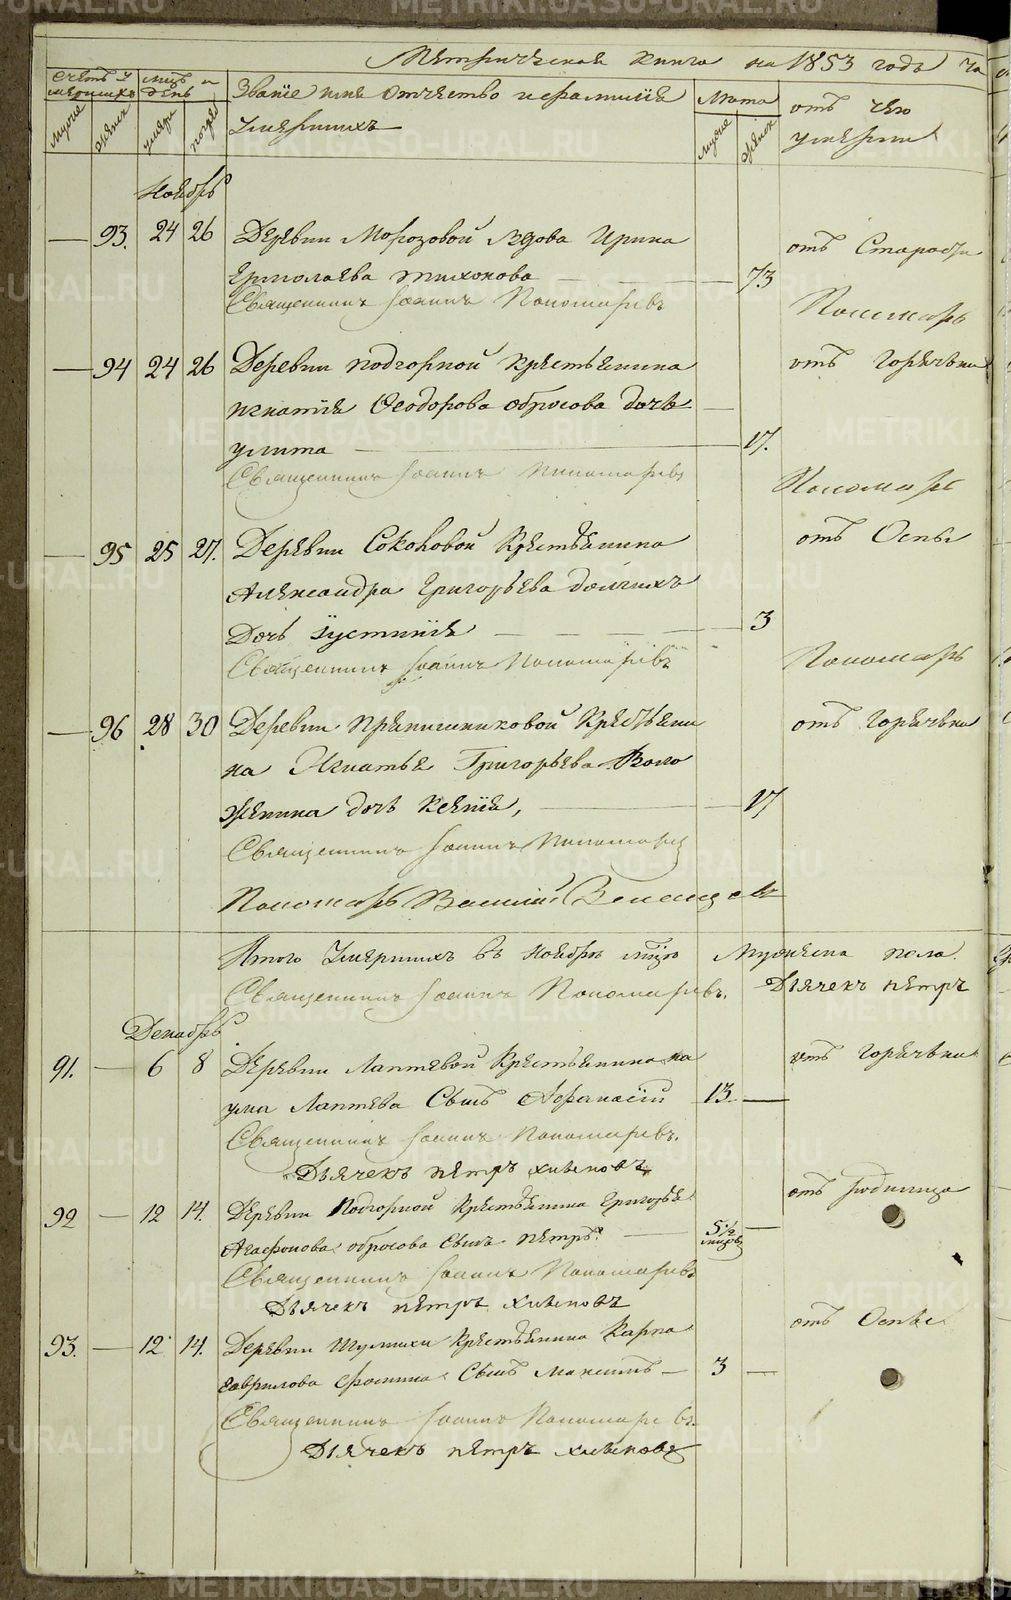 Метрическая книга на 1853 годъ ча
Счетъ умершихъ
мцъ и день
Званіе имя отчество и фамиліе умершихъ
Лѣта
отъ чего умерли
мужие женск умерти погреб мужие женск
Ноябрь
— 93. 24 26 Деревни Морозовой вдова Ирина отъ Старости
Ермолаева тихонова — 73
Священникъ Іоаннъ Пономаревъ Пономарь
— 94 24 26 Деревни подгорной крестьянина отъ горячьки
игнатія Ѳеодорова обросова дочь
улита — 17.
Священникъ Іоаннъ Пономаревъ Пономарь
— 95 25 27. Деревни Соколовой крестьянина отъ Оспы
Александра Григорьева
дочь Іустинія — 3
Священникъ Іоаннъ Пономаревъ Пономарь
— 96 28 30 Деревни крестьяни отъ горячьки
на Игнатья Григорьева Воло
женина дочь Ксенія, — 17
Священникъ Іоаннъ Пономаревъ
Пономарь Василій
Итого умершихъ въ ноябрѣ мцѣ Мужеска пола
Священникъ Іоаннъ Пономаревъ. Дьячекъ петръ
Декабрь
91. — 6 8 Деревни Лаптевой крестьянина на отъ горячьки
ума Лаптева Сынъ Афанасій 13. —
Священникъ Іоаннъ Пономаревъ.
Дьячекъ петръ хлыновъ
92 — 12 14. Деревни Подгорной крестьянина Григорья отъ родимца
Агафонова обросова Сынъ петръ. — 5 ½ мцовъ —
Священникъ Іоаннъ Пономаревъ
Дьячекъ петръ хлыновъ
93. — 12 14. Деревни Шулики крестьянина Карпа отъ Оспы
гаврилова Фомина Сынъ Максимъ — 3 —
Священникъ Іоаннъ Пономаревъ.
Дьячекъ петръ хлыновъ
METRIKI.GASO-URAL.RU